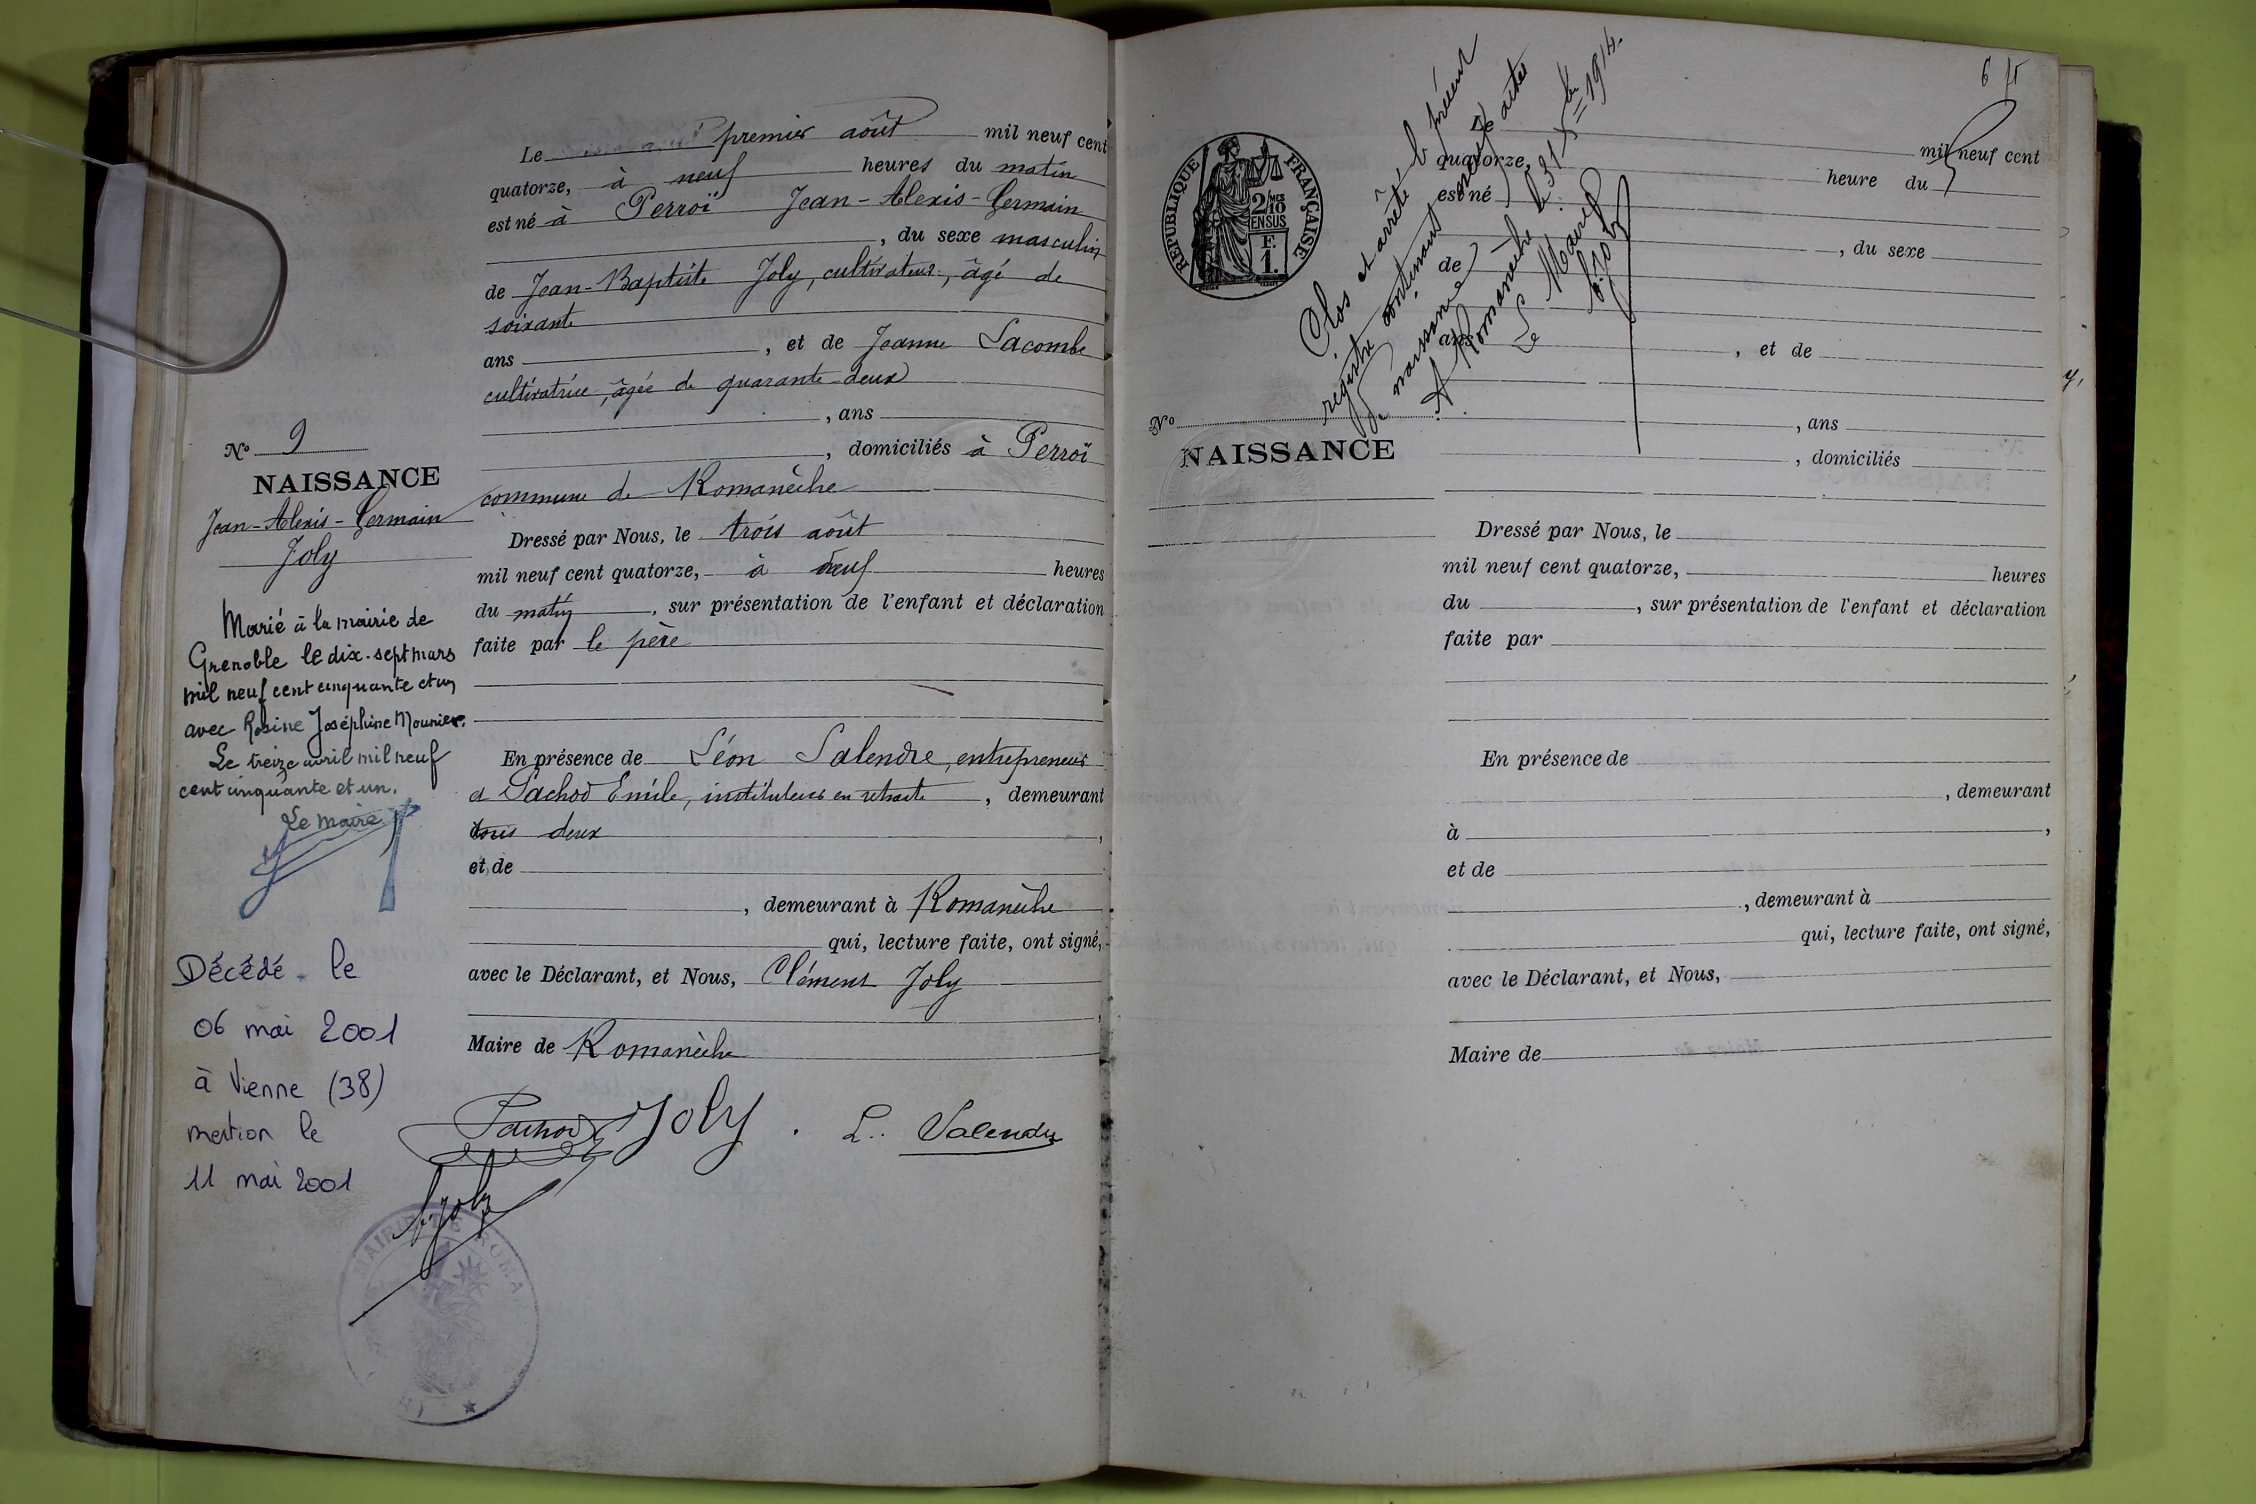 Le premier août mil neuf cent
quatorze, à neuf heures du matin
est né à Perroï Jean-Alexis-Germain
, du sexe masculin
de Jean-Baptiste Joly, cultivateur, âgé de
soixante
ans , et de Jeanne Lacombe
cultivatrice, âgée de quarante-deux
, ans
, domiciliés à Perroï
commune de Romanèche
Dressé par Nous, le trois août
mil neuf cent quatorze, à neuf heures
du matin , sur présentation de l'enfant et déclaration
faite par le père
En présence de Léon Salendre, entrepreneur
et Pachod Emile, instituteur en retraite , demeurant
tous deux ,
et de
, demeurant à Romanèche
qui, lecture faite, ont signé,
avec le Déclarant, et Nous, Clément Joly
,
Maire de Romanèche
Pachod Joly. L. Salendre
C. Joly
N° 9
NAISSANCE
Jean-Alexis-Germain
Joly
Marié à la mairie de
Grenoble le dix-sept mars
mil neuf cent cinquante et un
avec Rosine Joséphine Mounier.
Le treize avril mil neuf
cent cinquante et un.
Le maire
Décédé le
06 mai 2001
à Vienne (38)
mention le
11 mai 2001
MAIRIE DE ROMA
6
RÉPUBLIQUE FRANÇAISE
2/10 MES
EN SUS
F.
1.
Clos et arrêté le présent
registre contenant neuf actes
de naissance
A Romanèche le 31 Xbre 1914.
Le Maire
C. Joly
Le mil neuf cent
quatorze, heure du
est né
, du sexe
de
ans , et de
, ans
, domiciliés
N°
NAISSANCE
Dressé par Nous, le
mil neuf cent quatorze, heures
du , sur présentation de l'enfant et déclaration
faite par
En présence de
, demeurant
à ,
et de
, demeurant à
qui, lecture faite, ont signé,
avec le Déclarant, et Nous,
Maire de